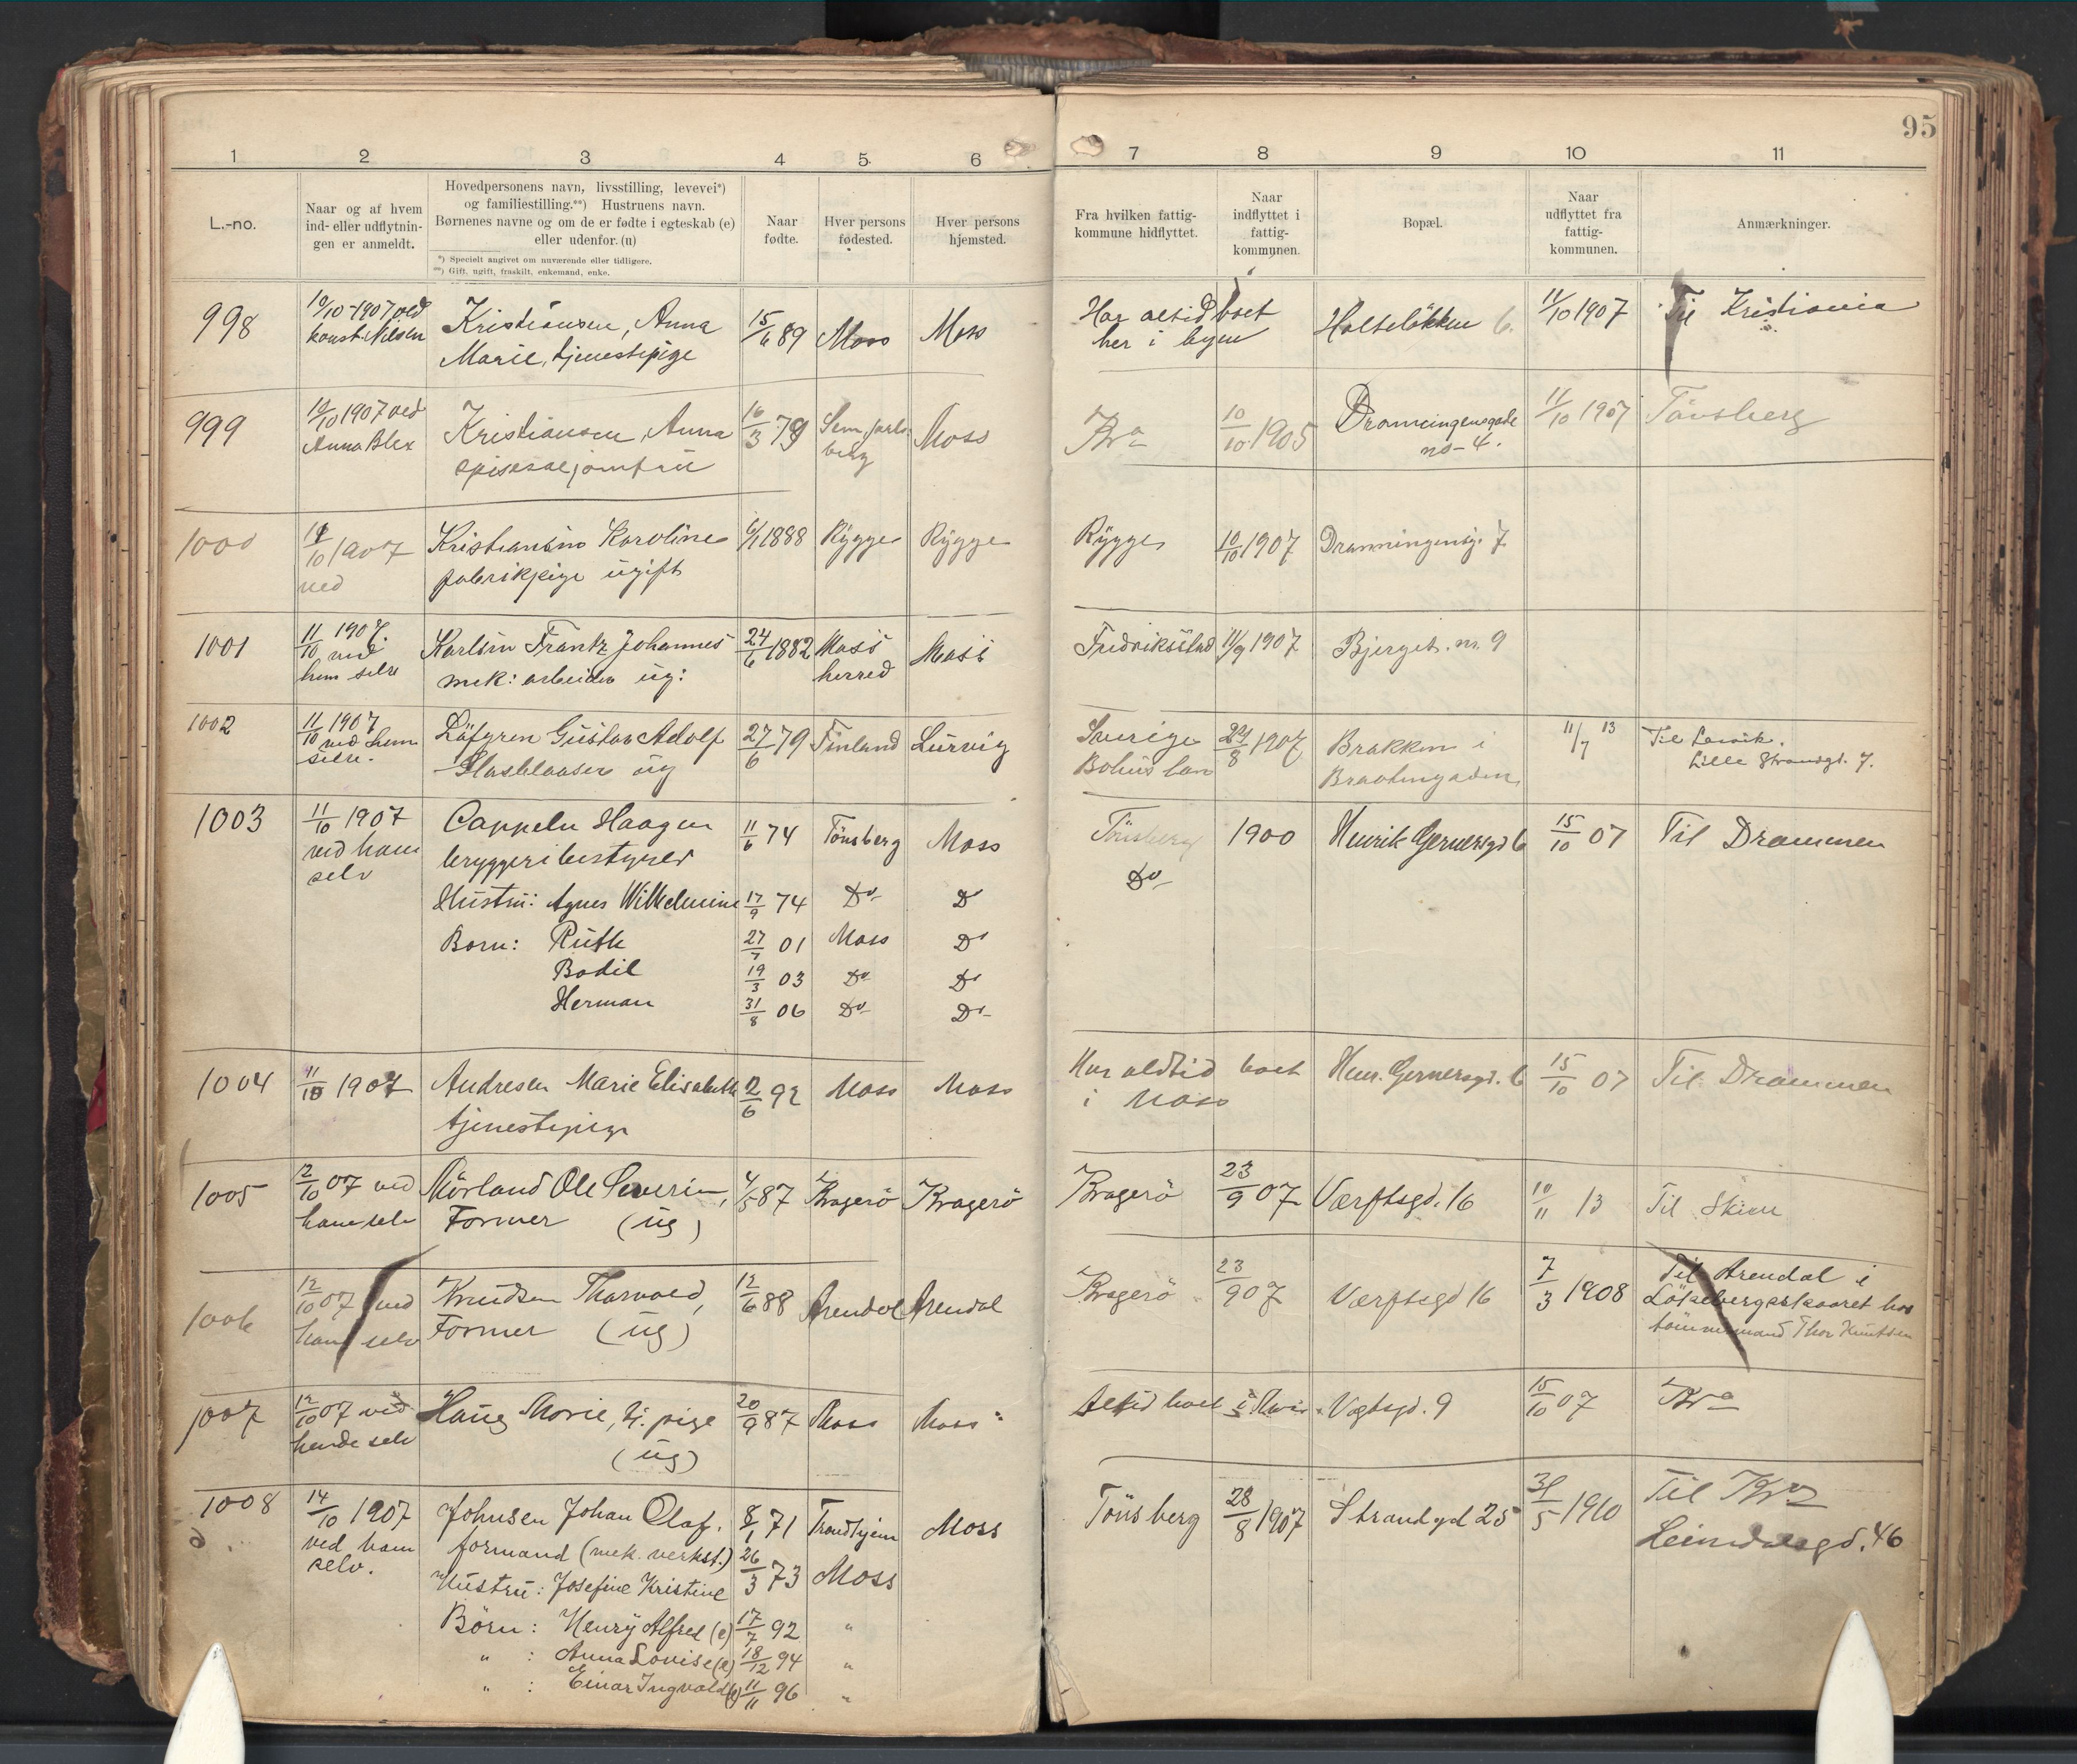 95
1 2 3 4 5. 6 7 8 9 10 11
L.-no.
Naar og af hvem
ind- eller udflytnin-
gen er anmeldt.
Hovedpersonens navn, livsstilling, levevei*)
og familiestilling.**) Hustruens navn.
Børnenes navne og om de er fødte i egteskab (e)
eller udenfor. (u)
*) Specielt angivet om nuværende eller tidligere.
**) Gift, ugift, fraskilt, enkemand, enke.
Naar
fødte.
Hver persons
fødested.
Hver persons
hjemsted.
Fra hvilken fattig-
kommune hidflyttet.
Naar
indflyttet i
fattig-
kommunen.
Bopæl.
Naar
udflyttet fra
fattig-
kommunen.
Anmærkninger.
998 10/10-1907 ved Kristiansen, Anna 15/6 89 Moss Moss Har altid boet Holteløkken 6. 11/10 1907 Til Kristiania
konst. Nilsen Marie, tjenestepige her i byen
999 10/10 1907 ved Kristiansen, Anna 16/3 79 Sem, Jarls- Moss Kra 10/10 1905 Dronningensgade 11/10 1907 Tønsberg
Anna Blex spisesaljomfru berg no-4.
1000 11/10 1907 Kristiansen Karoline 6/1 1888 Rygge Rygge Rygge 10/10 1907 Dronningensg. 7
ved fabrikpige ugift
1001 11/10 1907. Karlsen Frantz Johannes 24/6 1882 Moss Moss Fredriksstad 11/9 1907 Bjerget. nr. 9
ved mek: arbeider ug: herred
ham selv
1002 11/10 1907 Löfgren Gustav Adolf 27/6 79 Finland Lurvig Sverige 24/8 1907 Brakken i 11/7 13 Til Larvik.
ved ham Glasblaaser ug Bohus lan Lille Strandgd. 7.
selv.
1003 11/10 1907 Cappelen Haagen 11/6 74 Tönsberg Moss Tönsberg 1900 Henrik Gernersgd 6 15/10 07 Til Drammen
ved ham bryggeribestyrer Do
selv
Hustru: Agnes Wilhelmine 17/9 74 Do Do
Born: Ruth 27/7 01 Moss Do
Bodil 19/3 03 Do Do
Herman 31/8 06 Do Do
1004 11/10 1907 Andresen Marie Elisabeth 2/6 92 Moss Moss Har altid boet Henr. Gernersgd. 6 15/10 07 Til Drammen
tjenestepige i Moss
1005 12/10 07 ved Mörland Ole Severin, 4/5 87 Kragerö Kragerö Kragerö 23/9 07 Værftsgd. 16 10/11 13 Til Skien
ham selv Former (ug)
1006 12/10 07 ved Knudsen Thorvald, 12/6 88 Arendal Arendal Kragerö 23/9 07 Værftsgd 16 7/3 1908 Til Arendal i
ham selv Former (ug) hos
tömmermand Thor Knutsen
1007 12/10 07 ved Haug Marie, tj. pige 20/9 87 Moss Moss Altid boet i Vogtsgd. 9 15/10 07 Kra
hende selv (ug)
1008 14/10 1907 Johnsen Johan Olaf. 8/1 71 Trondhjem Moss Tönsberg 28/8 1907 Strandgd 25 31/5 1910 Til Kra
ved ham formand (mek. verkst.) Heimdalsgd. 46
selv. Hustru: Josefine Kristine 26/3 73 Moss
Börn: Henrÿ Alfred (e) 17/7 92 "
" : Anna Lovise (e) 18/12 94 "
" : Einar Ingvald (e) 11/11 96 "